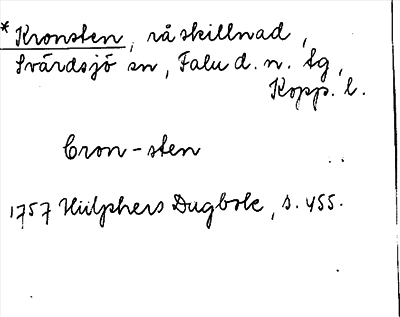 * Kronsten, råskillnad,
Svärdsjö sn, Falu d. n. tg,
Kopp. l.
Cron-sten
1757 Hülphers Dagbok, s. 455.